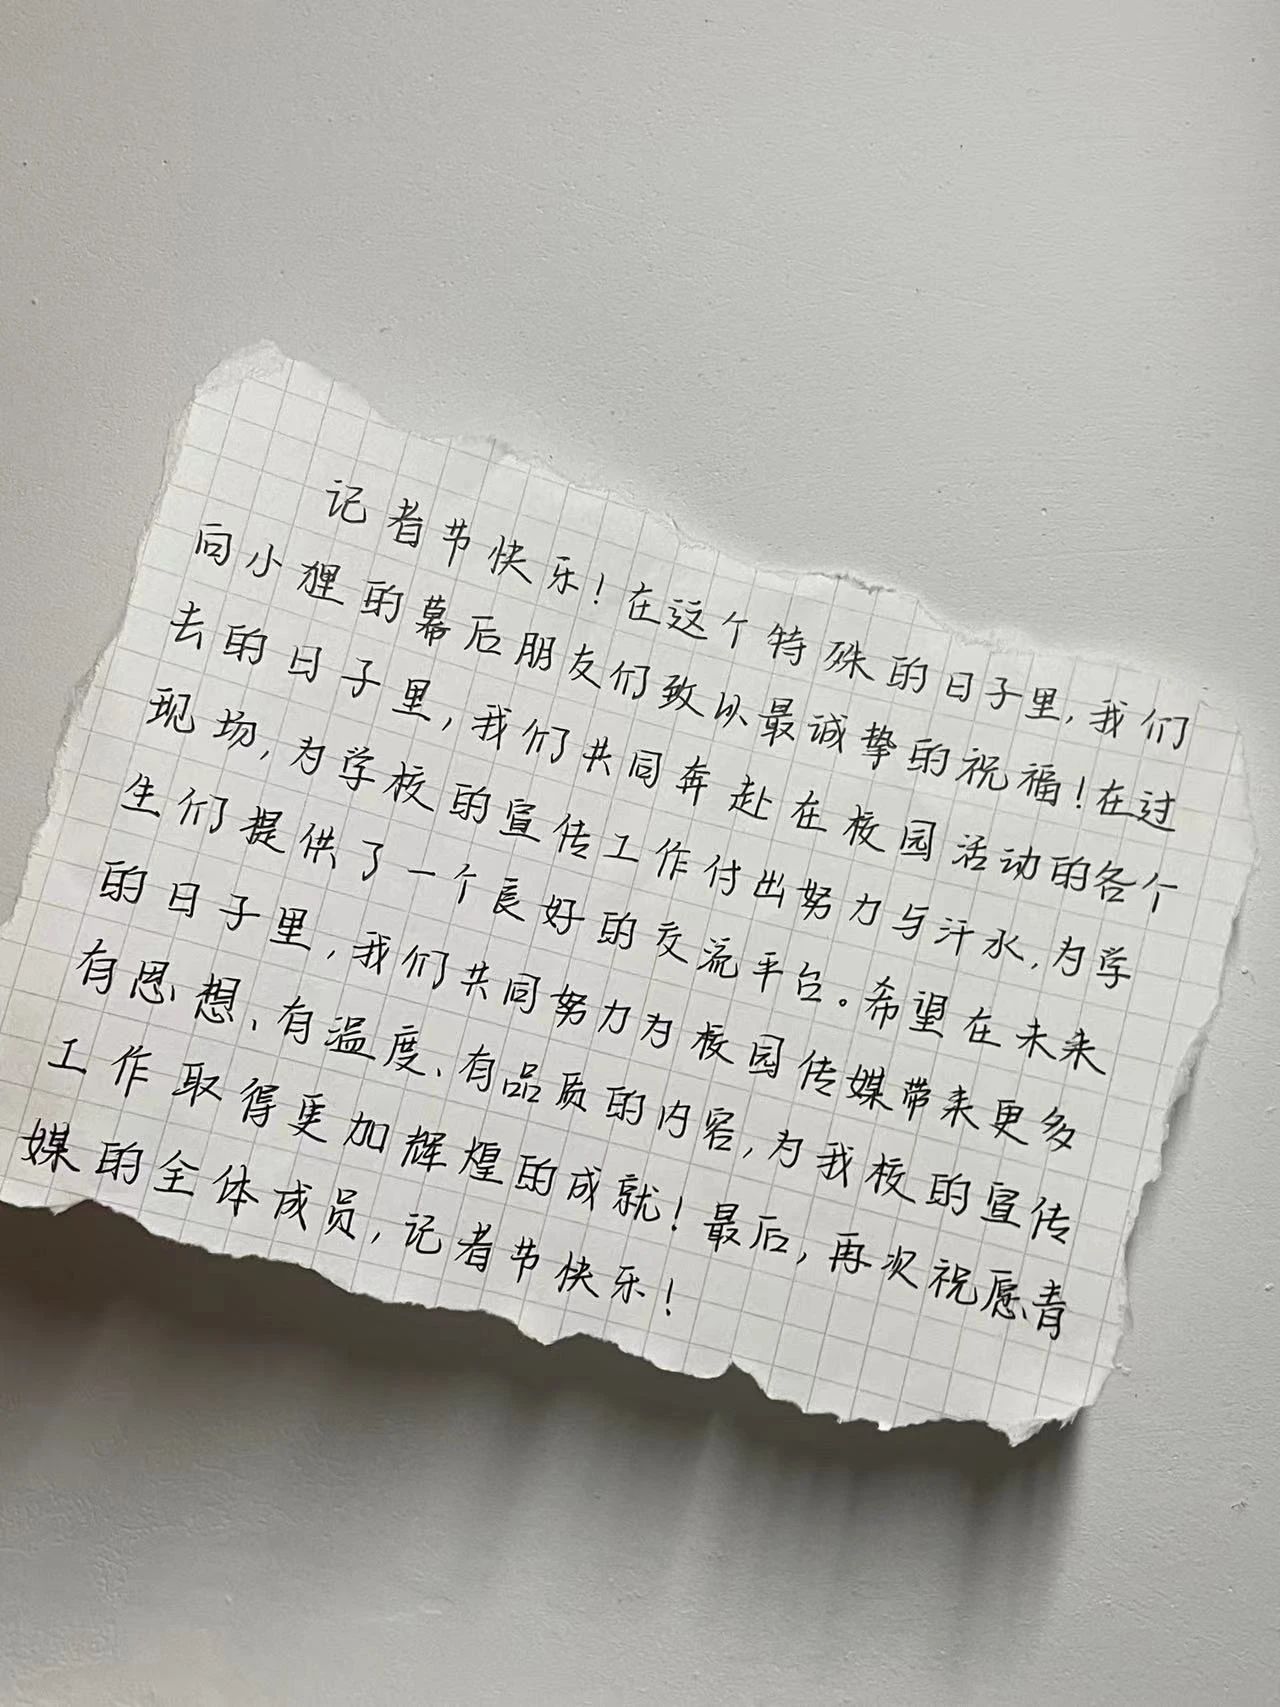 记者节快乐！在这个特殊的日子里，我们
向小狸的幕后朋友们致以最诚挚的祝福！在过
去的日子里，我们共同奔赴在校园活动的各个
现场，为学校的宣传工作付出努力与汗水，为学
生们提供了一个良好的交流平台。希望在未来
的日子里，我们共同努力为校园传媒带来更多
有思想、有温度、有品质的内容，为我校的宣传
工作取得更加辉煌的成就！最后，再次祝愿青
媒的全体成员，记者节快乐！